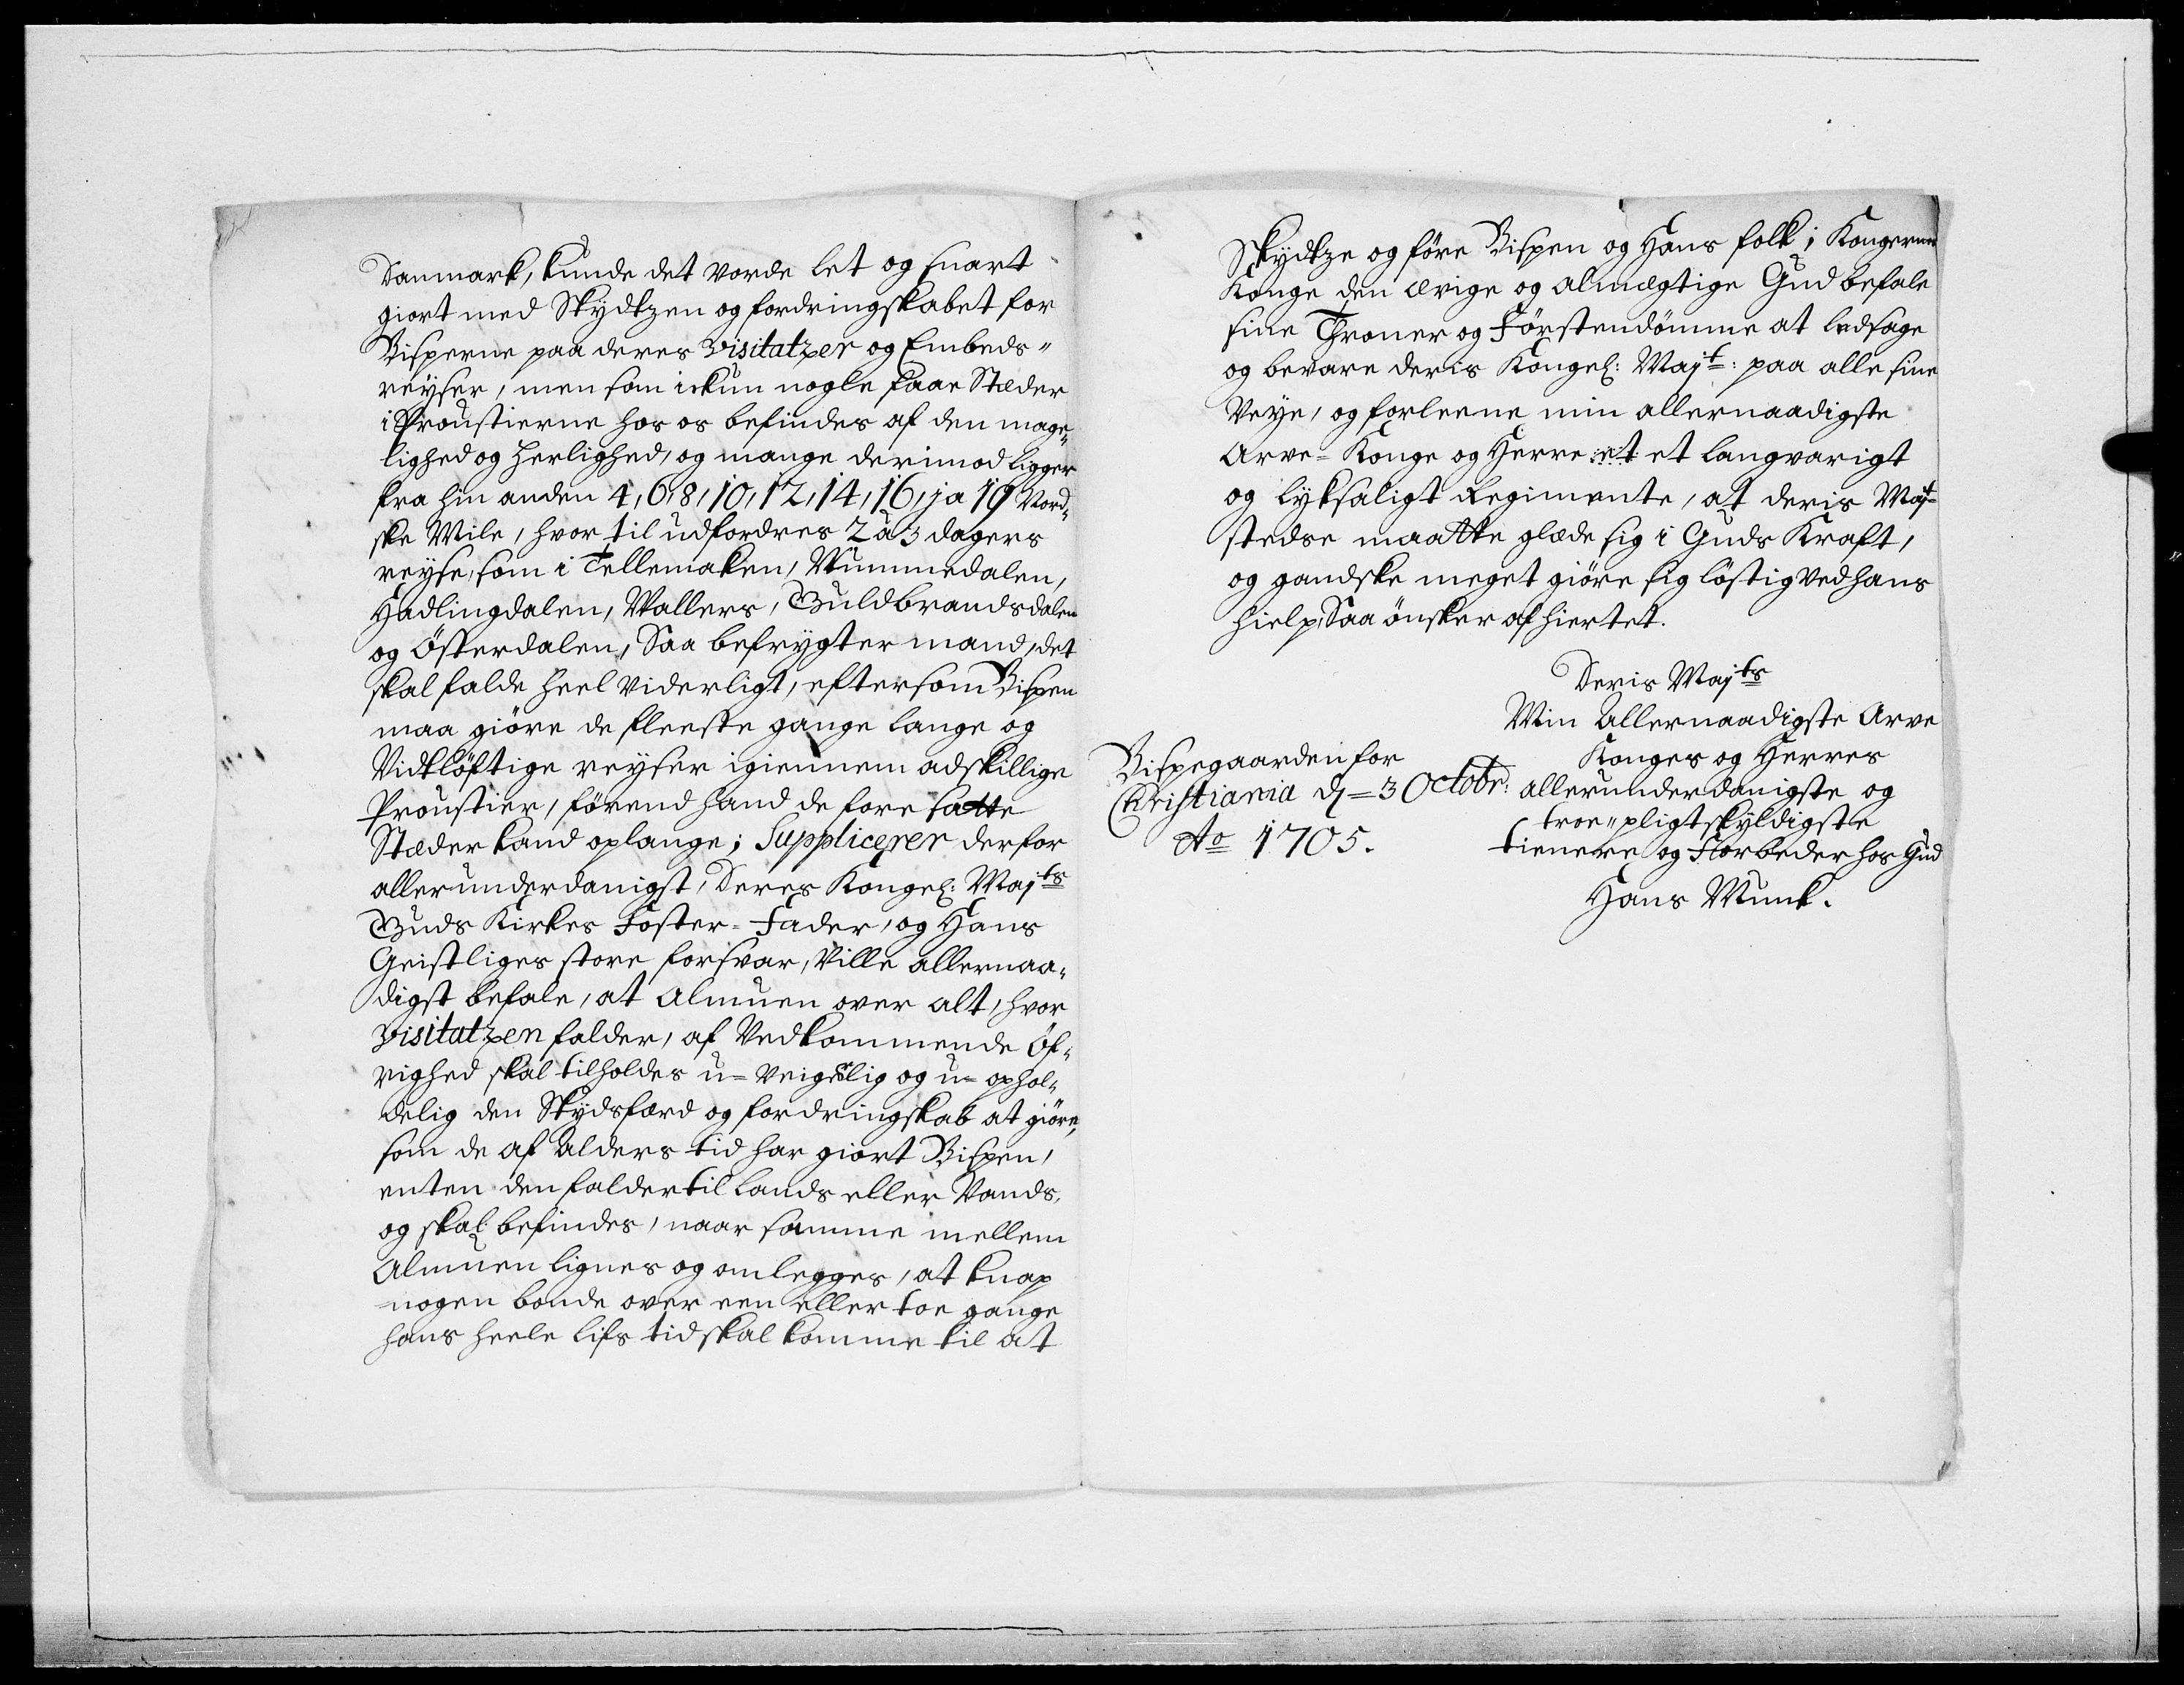 Danmark, kunde det vorde let og snart
giort med Skydtzen og fordringskabet for
Bisperne paa deres Visitatzer og Embeds"
reyser, men som ickun nogle faae Stæder
i Proustierne hos os befindes af den mage„
lighed og herlighed, og mange derimod ligger
fra hin anden 4, 6, 8, 10, 12, 14, 16, ja 19 Nord„
ske Mile, hvor til udfordres 2 à 3 dagers
reyse, som i Tellemaken, Nummedalen,
Hadlingdalen, Wallers, Guldbrandsdalen
og Österdalen, Saa befrygter mand, det
skal falde heel viderligt, eftersom Bispen
maa giöre de fleeste gange lange og
Vidtlöftige reyser igiennem adskillige
Proustier, förend hand de fore satte
Stæder kand oplange; Supplicerer derfor
allerunderdanigst, Deres Kongel: Majts
Guds Kirkes Foster=Fader, og Hans
Geistliges store forsvar, Ville allernaa„
digst befale, at Almuen over alt, hvor
Visitatzen falder, af Vedkommende Öf„
righed skal tilholdes u=veigerlig og u=ophol„
delig den Skydsfærd og fordringskab at giöre,
som de af Alders tid har giort Bispen,
enten den falder til Lands eller Vands,
og skal befindes, naar samme mellem
Almuen lignes og omlegges, at knap
nogen bonde over een eller toe gange
hans heele lifs tid skal komme til at
Skydtze og före Bispen og Hans folk; Kongernes
Konge den ævige og almægtige Gud befale
sine Throner og Förstendömme at ledsage
og bevare deris Kongel: Majt: paa alle sine
Veye, og forleene min allernaadigste
Arve=Konge og Herre et et langvarigt
og lyksaligt Regimente, at deris Majt
stedse maatte glæde sig i Guds Kraft,
og gandske meget giöre sig löstig ved hans
hielp, Saa önsker af hiertet.
Deris Majts
Min Allernaadigste Arve
Konges og Herres
Bispegaarden for
Christiania d=3 Octobr:
Ao 1705.
allerunderdanigste og
troe„pligtskyldigste
tienere og Forbeder hos Gud
Hans Munk.